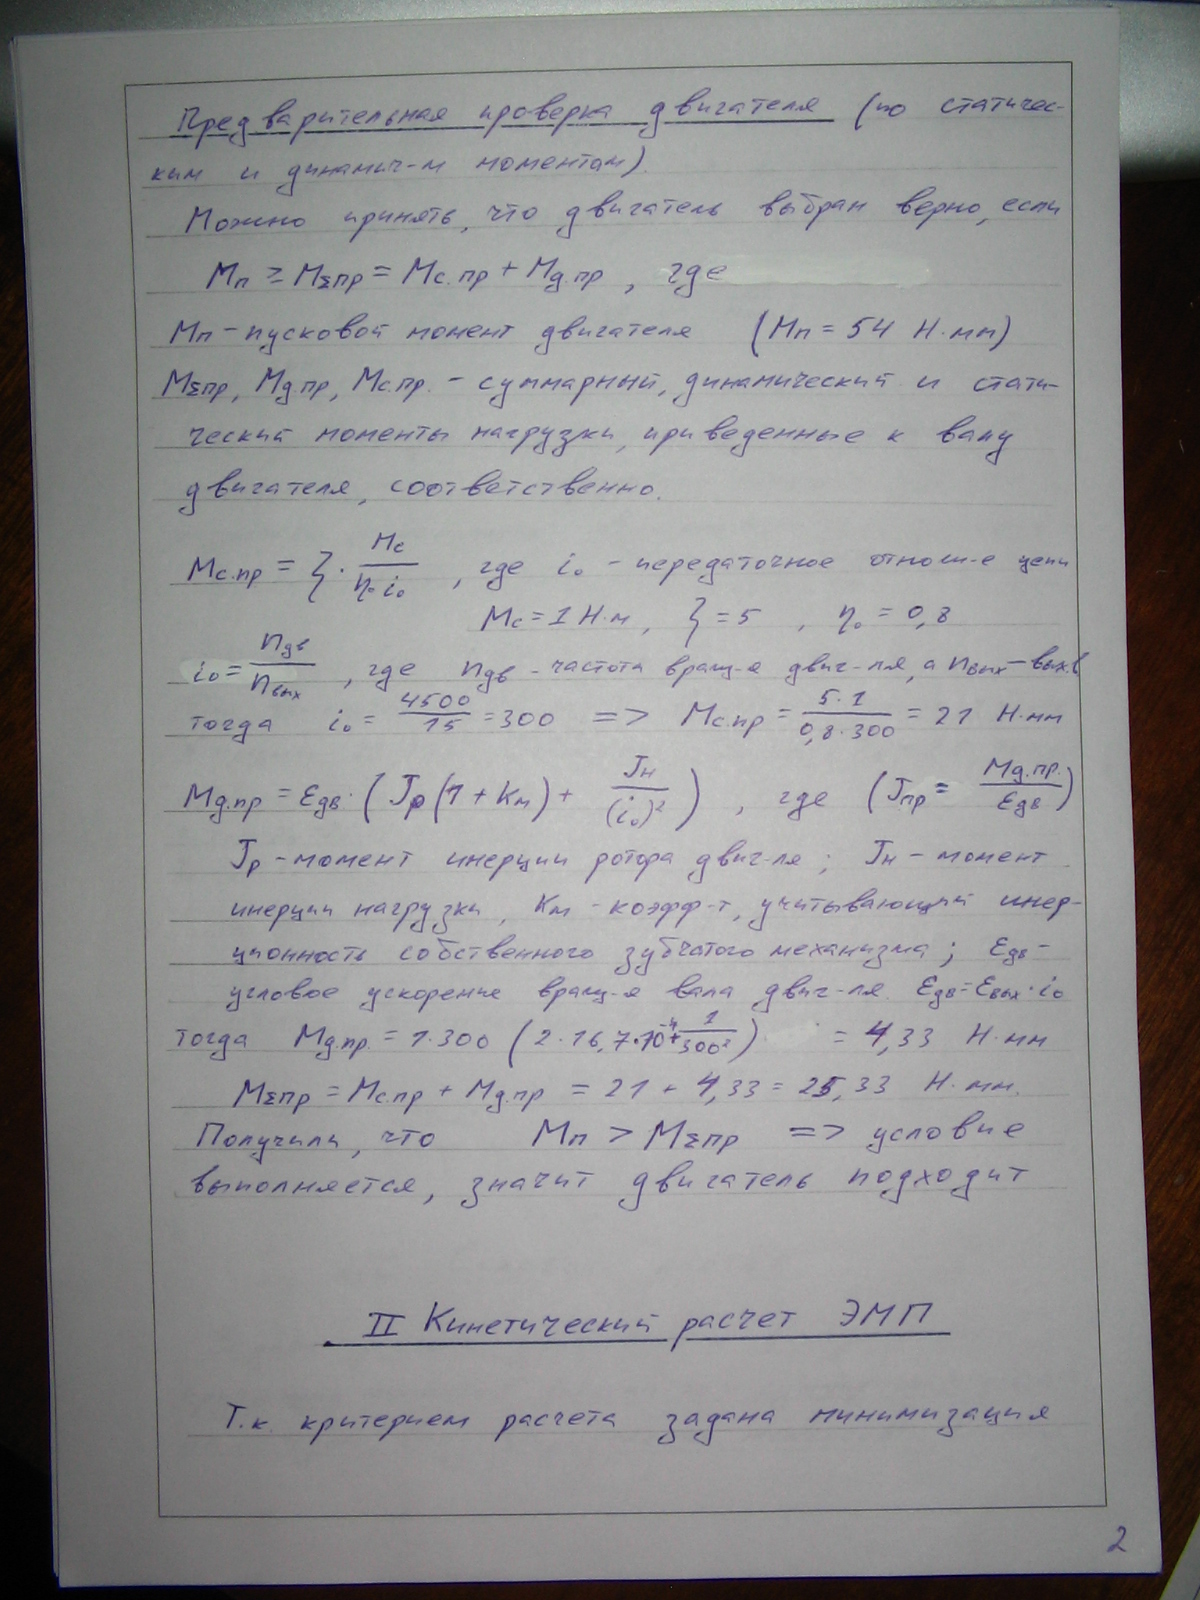 Предварительная проверка двигателя (по статичес-
ким и динамич-м моментам).
Можно принять, что двигатель выбран верно, если
Mп ≥ MΣпр = Mс.пр + Mд.пр , где
Mп - пусковой момент двигателя (Mп = 54 Н·мм)
MΣпр, Mд.пр, Mс.пр. - суммарный, динамический и стати-
ческий моменты нагрузки, приведенные к валу
двигателя, соответственно.
Mс.пр = ξ · Mс / (η₀·i₀) , где i₀ - передаточное отнош-е цепи
Mс = 1 Н·м, ξ = 5 , η₀ = 0,8
i₀ = nдв / nвых , где nдв - частота вращ-я двиг-ля, а nвых - вых.в
тогда i₀ = 4500 / 15 = 300 => Mс.пр = 5·1 / (0,8·300) = 21 Н·мм
Mд.пр = εдв · (Jр(1 + Kм) + Jн / (i₀)²) , где (Jпр = Mд.пр. / εдв)
Jр - момент инерции ротора двиг-ля ; Jн - момент
инерции нагрузки, Kм - коэфф-т, учитывающий инер-
ционность собственного зубчатого механизма ; εдв -
угловое ускорение вращ-я вала двиг-ля. εдв = εвых · i₀
тогда Mд.пр. = 1·300 (2·16,7·10⁻⁴ + 1 / 300²) = 4,33 Н·мм
MΣпр = Mс.пр + Mд.пр = 21 + 4,33 = 25,33 Н·мм.
Получили, что Mп > MΣпр => условие
выполняется, значит двигатель подходит
II Кинетический расчет ЭМП
Т.к. критерием расчета задана минимизация
2